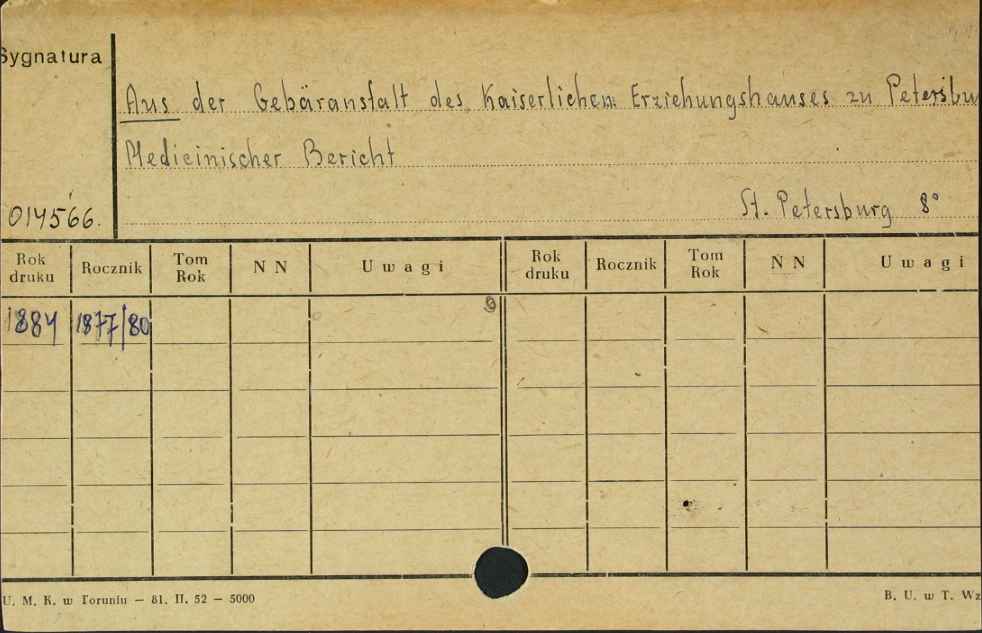 Sygnatura
Aus der Gebäranstalt des Kaiserlichen Erziehungshauses zu Petersbu
Medicinischer Bericht
St. Petersburg 8°
014566.
Rok druku Rocznik Tom Rok N N Uwagi Rok druku Rocznik Tom Rok N N Uwagi
1884 1877/80
U. M. K. w Toruniu — 81. II. 52 — 5000
B. U. w T. Wz